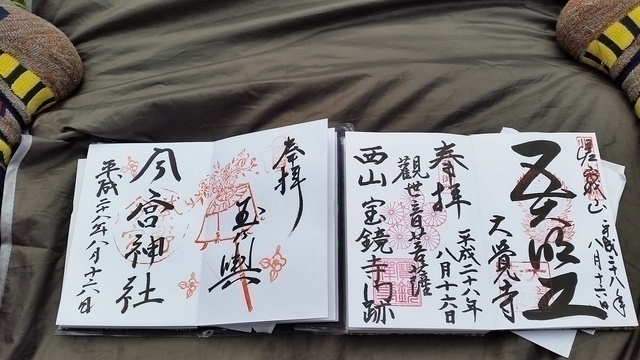 嵯峨山
平成二十八年
八月十六日
五大明王
大覺寺
奉拜
平成二十八年
八月十六日
観世音菩薩
西山宝鏡寺門跡
奉拝
玉の輿
今宮神社
平成二八年八月十六日